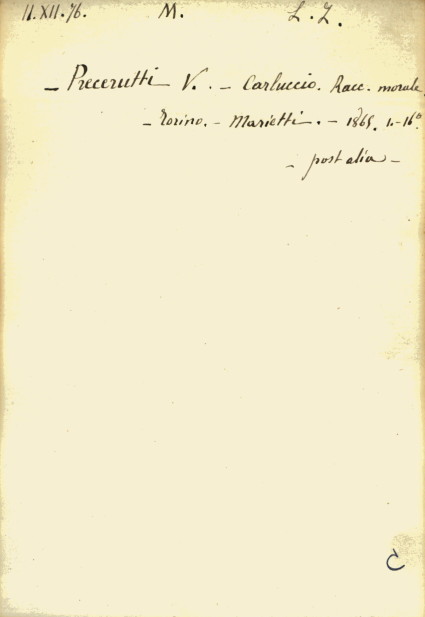 11.XII.76. M. L. Z.
- Precerutti V. - Carluccio. Racc. morale.
- Torino. - Marietti. - 1865. 1.-16°.
- post alia -
C